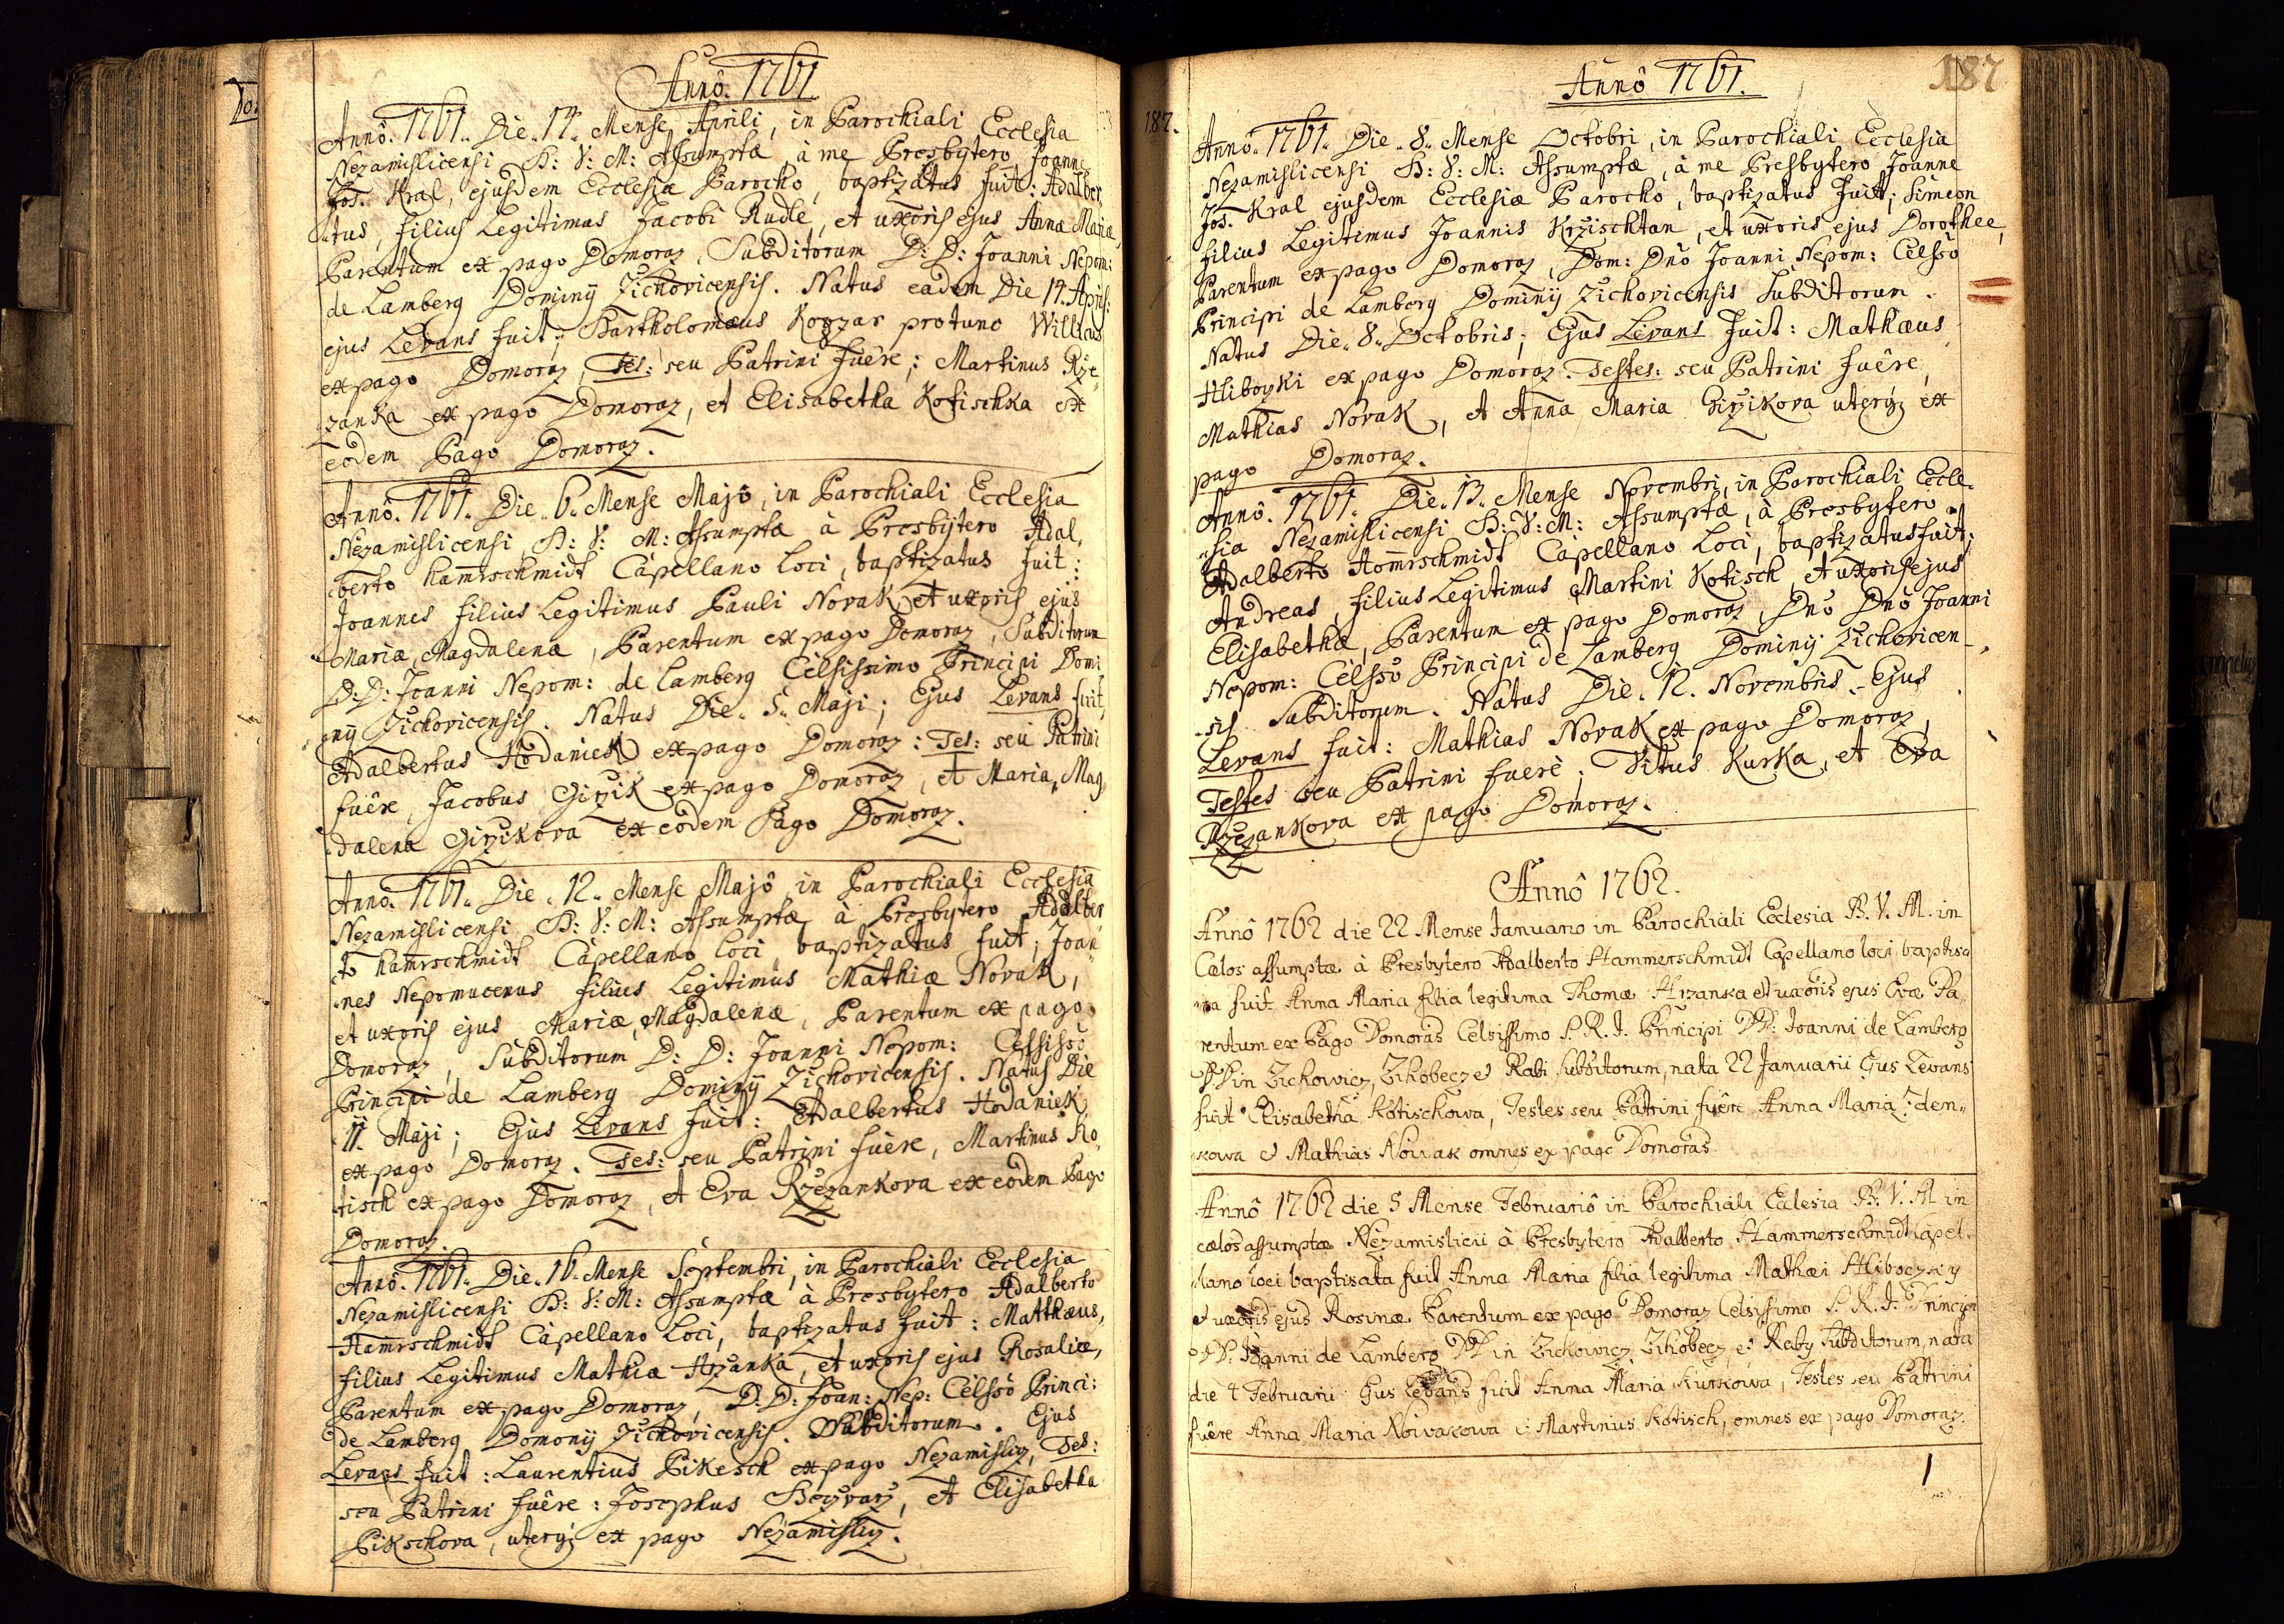 Annô. 1761.
Annô. 1761. Die. 14. Mense Aprili, in Parochiali Ecclesia
Nezamislicensi B: V: M: Assumptæ, à me Presbytero Joanne
Jos. Kral, ejusdem Ecclesiæ Parocho, baptizatus fuit: Adalber
tus, filius Legitimus Jacobi Rudle, et uxoris ejus Annæ Mariæ,
Parentum ex pago Domoraz, Subditorum D: D: Joanni Nepom:
de Lamberg Dominÿ Zichovicensis. Natus eadem Die 14. April:
ejus Levans fuit; Bartholomæus Kogzar protunc Willicus
ex pago Domoraz, Tes: seu Patrini fuêre; Martinus Rze
zanka ex pago Domoraz, et Elisabetha Kotischka ex
eodem Pago Domoraz.
Annô. 1761. Die. 6. Mense Majô, in Parochiali Ecclesia
Nezamislicensi B: V: M: Assumptæ à Presbÿtero Adal,
berto Hamrschmidt Capellano Loci, baptizatus fuit:
Joannes filius Legitimus Pauli Novak, et uxoris ejus
Mariæ Magdalenæ, Parentum ex pago Domoraz, Subditorum
D: D: Joanni Nepom: de Lamberg Celsissimo Principi Domi
nÿ Zichovicensis. Natus Die. 5. Maji; Ejus Levans fuit,
Adalbertus Hodaniek ex pago Domoraz: Tes: seu Patrini
fuêre, Jacobus Girzik ex pago Domoraz, et Maria Mag,
dalena Girzikova ex eôdem Pago Domoraz.
Annô. 1761. Die. 12. Mense Majô in Parochiali Ecclesia
Nezamislicensi B: V: M: Assumptæ à Presbytero Adalber
to Hamrschmidt Capellano Loci baptizatus fuit; Joan
nes Nepomucenus filius Legitimus Mathiæ Novak,
et uxoris ejus Mariæ Magdalenæ, Parentum ex pago
Domoraz, Subditorum D: D: Joanni Nepom:
Principi de Lamberg Dominÿ Zichovicensis. Natus Die
11. Maji; Ejus Levans fuit: Adalbertus Hodaniek
ex pago Domoraz. Tes: seu Patrini fuêre, Martinus Ko,
tisch ex pago Domoraz, et Eva Rzezankova ex eôdem Pago
Domoraz.
Annô. 1761. Die. 16. Mense Septembri, in Parochiali Ecclesia
Nezamislicensi B: V: M: Assumptæ à Presbytero Adalberto
Hamrschmidt Capellano Loci, baptizatus fuit: Matthæus,
filius Legitimus Mathiæ Hrzanka, et uxoris ejus Rosaliæ,
Parentum ex pago Domoraz, D: D: Joan: Nep: Celsso Princi:
de Lamberg Domonij Zichovicensis. Subditorum. Ejus
Levans fuit: Laurentius Pikesch ex pago Nezamisliz, Tes:
seu Patrini fuêre: Josephus, et Elisabetha
Pikschova, uterq; ex pago Nezamisliz.
Annô 1761.
187
187.
Annô. 1761. Die. 8. Mense Octobri, in Parochiali Ecclesia
Nezamislicensi B: V: M: Assumptæ, à me Presbytero Joanne
Jos. Kral ejusdem Ecclesiæ Parocho, baptizatus fuit; Simeon
filius Legitimus Joannis Krzischtan, et uxoris ejus Dorothee,
Parentum ex pago Domoraz, Dom: Dnô Joanni Nepom: Celssô
Principi de Lamberg Dominÿ Zichovicensis Subditorum.
Natus Die. 8. Octobris; Ejus Levans fuit: Mathæus
Hlibozki ex pago Domoraz. Testes: seu Patrini fuêre,
Mathias Novak, et Anna Maria Girzikova uterq; ex
pago Domoraz.
Annô. 1761. Die. 13. Mense Novembri, in Parochiali Eccle,
sia Nezamislicensi B: V: M: Assumptæ, à Presbytero
Adalberto Homrschmidt Capellano Loci, baptizatus fuit;
Andreas, filius Legitimus Martini Kotisch, et uxoris ejus
Elisabethæ, Parentum ex pago Domoraz, Dnô Dnô Joanni
Nepom: Celssô Principi de Lamberg Dominÿ Zichovicen-
sis Subditorum. Natus Die. 12. Novembris. Ejus
Levans fuit: Mathias Novak ex pago Domoraz,
Testes seu Patrini fuerê; Vitus Kurka, et Eva
Rzezankova ex pago Domoraz.
Annô 1762.
Annô 1762 die 22 Mense Januario in Parochiali Ecclesia B. V. M. in
Cælos assumptæ à Presbytero Adalberto Hammerschmidt Capellano loci baptisa
ta fuit Anna Maria filia legitima Thomæ Hrzanka et uxoris ejus Evæ Pa
rentum ex Pago Domoras Celsissimo S. R. I. Principi DD: Joanni de Lamberg
in Zickowicz, Zihobecz et Rabi subditorum, nata 22 Januarii Ejus Levans
fuit Elisabetha Kotischowa, Testes seu Patrini fuêre Anna Maria
kowa et Mathias Nowak omnes ex pago Domoras.
Annô 1762 die 5 Mense Februariô in Parochiali Eclesia B. V. M in
cælos assumptæ à Presbytero Adalberto Hammerschmidt Capel
lano loci baptisata fuit Anna Maria filia legitima Mathæi Hliboczky
et uxoris ejus Rosinæ Parentum ex pago Domoraz Celsissimo S. R. I. Principi
DD. Joanni de Lamberg in Zickowicz, Zihobecz et Raby subditorum, nata
die 4 Februarii Ejus Levans fuit Anna Maria Kurkowa, Testes seu Patrini
fuêre Anna Maria Nowakowa et Martinus Kotisch, omnes ex pago Domoraz.